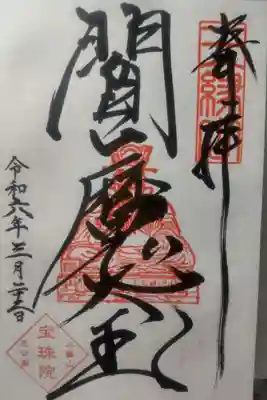 奉拝
閻魔大王
令和六年三月
宝珠院